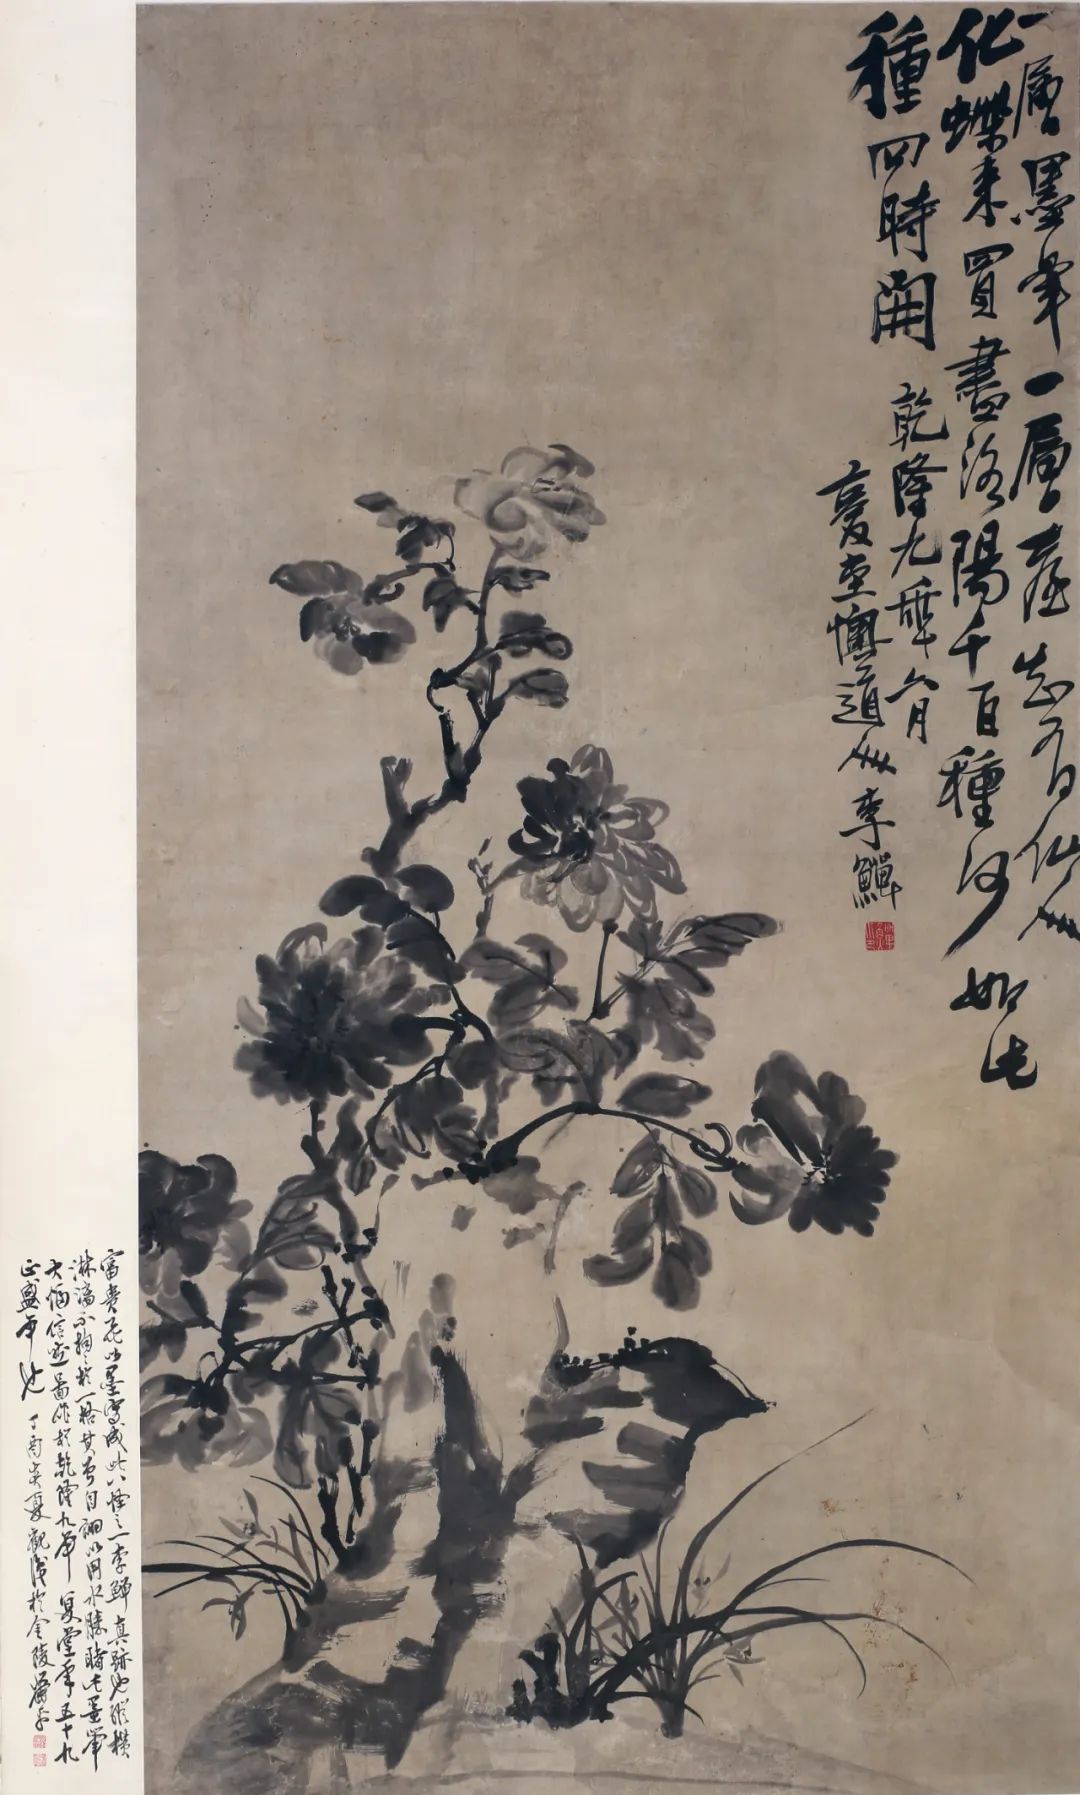 一層墨筆一層臺知有仙人
化蝶来買畫洛陽千百種何如此
種四時開
乾隆九年六月
復堂懊道人李鱓
富貴花以墨寫成此八怪之一李鱓真跡也縱橫
淋漓不拘於一格其画自詡以用水勝時此墨筆
大幅信然圖作於乾隆九年復堂年五十九
正盛年也丁酉炎夏觀後於金陵蕭平